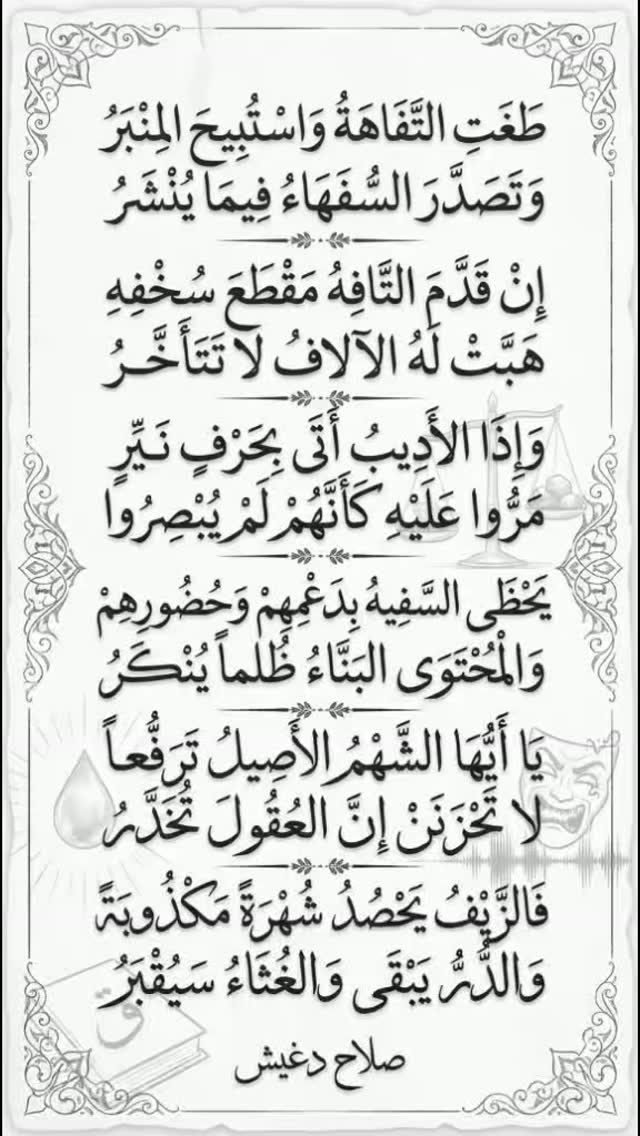 طَغَتِ التَّفَاهَةُ وَاسْتُبِيحَ المِنْبَرُ
وَتَصَدَّرَ السُّفَهَاءُ فِيمَا يُنْشَرُ
إِنْ قَدَّمَ التَّافِهُ مَقْطَعَ سُخْفِهِ
هَبَّتْ لَهُ الآلافُ لا تَتَأَخَّرُ
وَإِذَا الأَدِيبُ أَتَى بِحَرْفٍ نَيِّرٍ
مَرُّوا عَلَيْهِ كَأَنَّهُمْ لَمْ يُبْصِرُوا
يَحْظَى السَّفِيهُ بِدَعْمِهِمْ وَحُضُورِهِمْ
وَالْمُحْتَوَى البَنَّاءُ ظُلماً يُنْكَرُ
يَا أَيُّهَا الشَّهْمُ الأَصِيلُ تَرَفُّعاً
لا تَحْزَنَنْ إِنَّ العُقُولَ تُخَدَّرُ
فَالزَّيْفُ يَحْصُدُ شُهْرَةً مَكْذُوبَةً
وَالدُّرُّ يَبْقَى وَالغُثَاءُ سَيُقْبَرُ
صلاح دغيش
ق